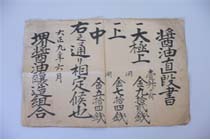 醤油直段書
大極上
一上
仝
金七拾四銭
中
仝
金五拾四銭
右之通り相定候也
大正九年六月
堺醤油醸造組合